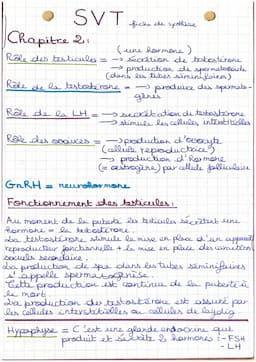 SVT fiche de synthèse
Chapitre 2:
(une hormone)
Rôle des testicules = → sécrétion de testostérone
→ production de spermatozoïde
(dans les tubes séminifères)
Rôle de la testostérone = → produire des spermato-
gènes
Rôle de la LH = → sécrétation de testostérone
→ stimule les cellules interstitielles
Rôle des ovaires = → production d'ovocyte
(cellule reproductrice)
→ production d'hormone
(= œstrogène) par cellule folliculaire
GnRH = neurohormone
Fonctionnement des testicules:
Au moment de la puberté les testicules sécrètent une
hormone = la testostérone.
La testostérone stimule la mise en place d'un appareil
reproducteur fonctionnelle + la mise en place des caractères
sexuels secondaire.
La production de spz dans les tubes séminifères
s'appelle spermatogénèse.
Cette production est continue de la puberté à
la mort.
La production de testostérone est assuré par
les cellules interstitielles ou cellules de leydig
Hypophyse = C'est une glande endocrine qui
produit et sécrète 2 hormones: - FSH
- LH